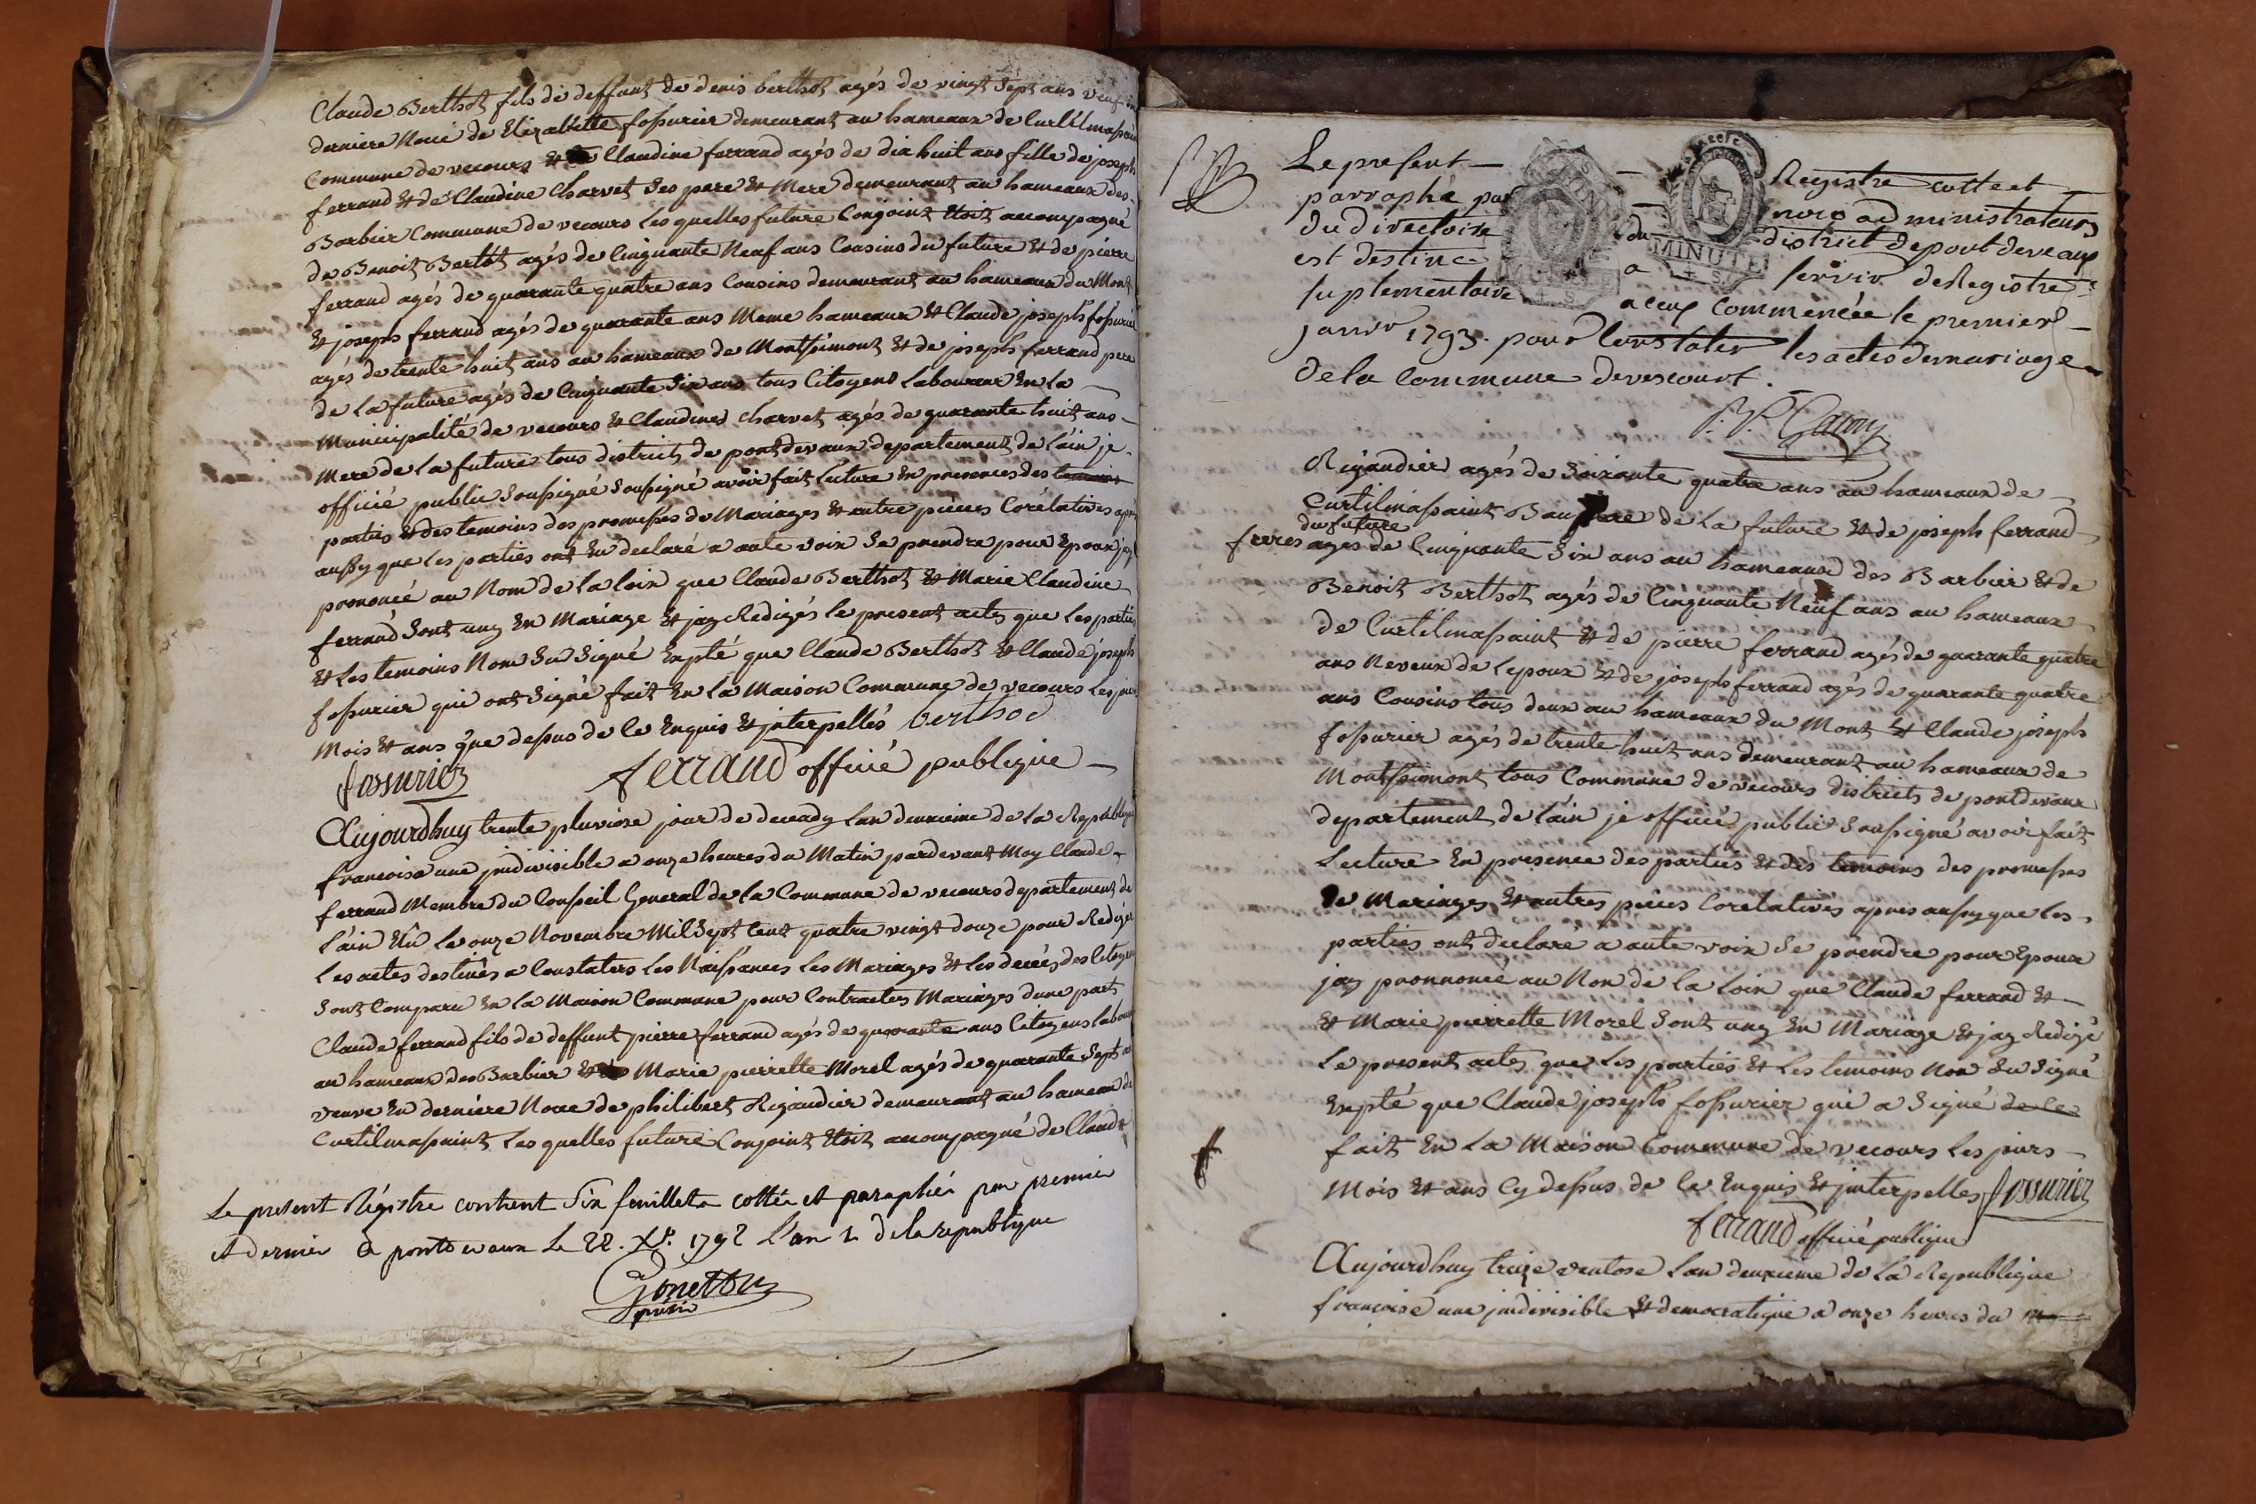 Claude Berthot fils de deffunt de denis berthot agés de vingt sept ans veuf en
derniere Noue de Elizabette fossurier demeurant au hameaux de Curtilmassaint
Commune de vecours et Claudine ferrand agés de dix huit ans fille de joseph
ferrand et de Claudine Charvet ses pere et Mere demeurant au hameaux des
Barbier Commune de vecours les quelles future Conjoint Etoit accompagné
de Benoit Bertot agés de Cinquante Neuf ans Cousins du future et de pierre
ferrand agés de quarante quatre ans Cousins demeurant au hameaux du Mont
et joseph ferrand agés de quarante ans Meme hameaux et Claude joseph fossurier
agés de trente huit ans au hameaux de Montsimont et de joseph ferrand pere
de la future agés de Cinquante Six ans tous Citoyens Laboureur En la
Municipalité de vecours et Claudines Charvet agés de quarante huit ans
Mere de la future tous districts de pontdevaux departement de l'ain je
officié public Soussigné Soussigné avoir fait Lecture En presences des temoins
parties et des temoins des promesses de Mariages et autre piéces Corélatives apres
aussy que les parties ont En declaré a aute voix Se prendre pour Epoux jay
prononcé au Nom de la loix que Claude Berthot et Marie Claudine
ferrand Sont uny En Mariage et jay Redigés le present actes que les parties
et les temoins Nom Su Signé Exepté que Claude Berthot et Claude joseph
fossurier qui ont Signé fait En la Maison Commune de vecours les jour
Mois et ans que dessus de Ce Enquis et jnterpellés berthod
fossurier ferrand officié publique
Aujourdhuy trente pluviose jour de decady lan deuxieme de la Republique
francoise une jndivisible a onze heures du Matin pardevant Moy Claude
ferrand Membre du Conseil General de la Commune de vecours departement de
l'ain Elû le onze Novembre Mil Sept Cent quatre vingt douze pour Rediger
les actes destinés a Constaters les Naissances les Mariages et les decés des Citoyens
Sont Comparu En la Maison Commune pour Contracter Mariages dune part
Claude ferrand fils de deffunt pierre ferrand agés de quarante ans Citoyens laboureur
au hameaux des Barbier et Marie pierrette Morel agés de quarante Sept ans
veuve En derniére Noue de philibert Rigaudier demeurant au hameau de
Curtilmassaint les quelles future Conjoint Etoit acompagné de Claude
Le present Régistre contient Six feuillets cottés et paraphés par premier
et dernier a pontdevaux Le 22. Xbre. 1792 L'an 1 de la republique
Gonetton
présid
Le present Registre cotte et
parraphé par nous administrateurs
du directoire du district de pont de vaux
est destinc a servir de Registre
suplementaire a ceux commencée le premier
janvr 1793. pour Constater les actes de mariage
de la Commune de vescourt.
MINUTE
MINUTE
Rigaudier agés de Soixante quatre ans au hameaux de
Curtilmassaint Beau pere de la future et de joseph ferrand
du future
freres agés de Cinquante Six ans au hameaux des Barbier et de
Benoit Berthot agés de Cinquante Neuf ans au hameaux
de Curtilmassaint et de pierre ferrand agés de quarante quatre
ans Neveux de lepoux et de joseph ferrand agés de quarante quatre
ans Cousins tous deux au hameaux du Mont et Claude joseph
fossurier agés de trente huit ans demeurant au hameaux de
Montsimont tous Commune de vecours districts de pontdevaux
departement de l'ain je officié public Soussigné avoir fait
Lecture En presence des parties et des temoins des promesses
de Mariages et autres piéces Corelatives apres aussy que les
parties ont declare a aute voix Se prendre pour Epoux
jay pronnoncé au Non de la loix que Claude ferrand et
et Marie pierrette Morel Sont uny En Mariage et jay Redigé
le present actes que les parties et les temoins Non Su Signé
Exepté que Claude joseph fossurier qui a Signé de Ce
fait En la Maison Commune de vecours les jours
Mois et ans Cy dessus de Ce Enquis et jnterpelles fossurier
ferrand officié publique
Aujourdhuy treize ventose lan deuxieme de la Republique
francoise une jndivisible et democratique a onze heures du